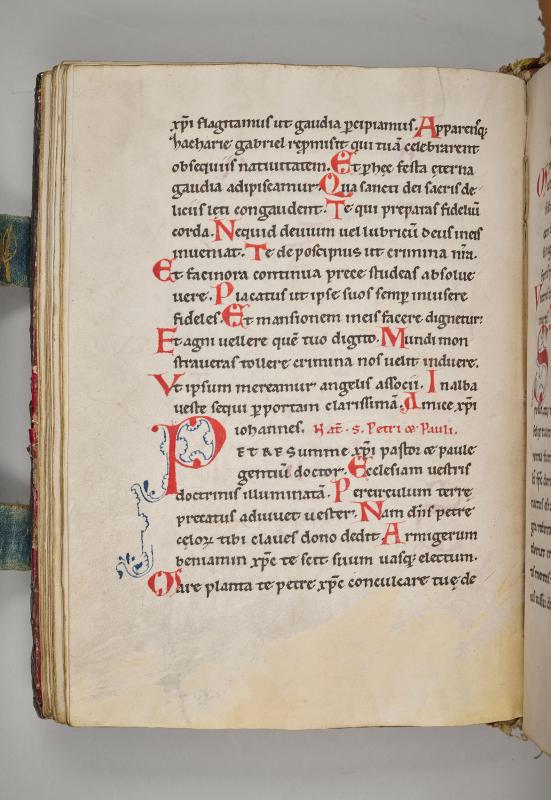 xp̄i flagitamus ut gaudia p̱cipiamus. Apparensq;
hacharie gabriel rep̱misit qui tuā celebrarent
obsequiis nativitatem. Et p̱ hęc festa ęterna
gaudia adipiscamur. Qua sancti dei sacris de
liciis lęti congaudent. Te qui preparas fideliū
corda. Nequid devium vel lubricū deus in eis
inveniat. Te deposcimus ut crimina nr̄a.
Et facinora continua prece studeas absolve
vere. Placatus ut ipse suos semp̱ invisere
fideles. Et mansionem in eis facere dignetur:
Et agni vellere quē tuo digito. Mundi mon
straveras tollere crimina nos velit induere.
Vt ipsum mereamur angelis associi. In alba
veste sequi p̱ portam clarissimā. Amice xp̄i
iohannes. Nat̄. S. Petri & Pauli.
PETRE summe xp̄i pastor & paule
gentiū doctor. Ecclesiam vestris
doctrinis illuminatā. Per circulum terrę
precatus adiuvet vester. Nam dn̄s petre
cęlorꝝ tibi claves dono dedit Armigerum
beniamin xp̄c te scit suum vasq; electum.
Mare planta te petre xp̄c conculcare tuę de